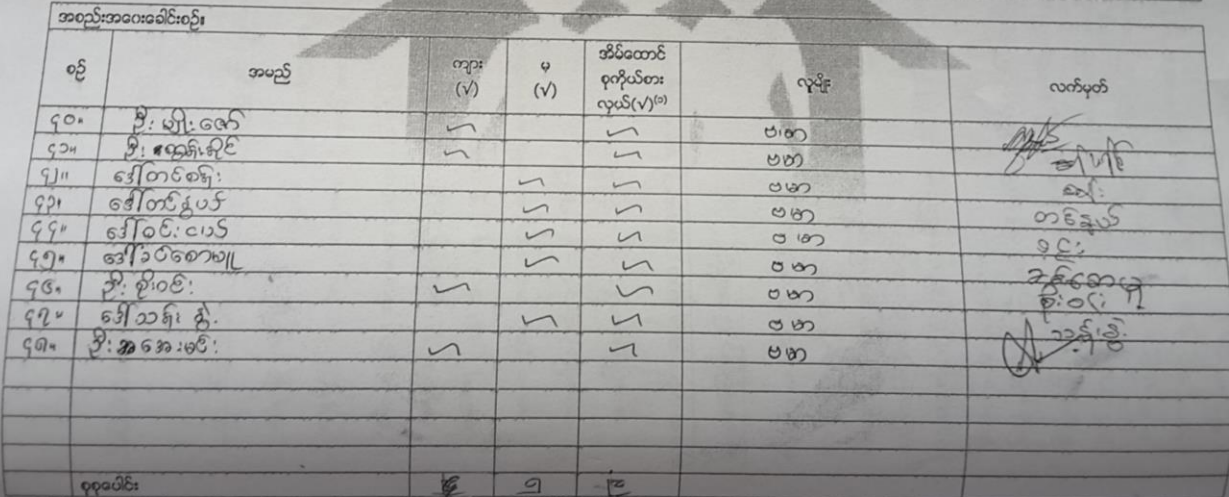 အစည်းအဝေးခေါင်းစဉ်။
စဉ် အမည် ကျား (√) မ (√) အိမ်ထောင်စုကိုယ်စားလှယ်(√)⁽¹⁾ လူမျိုး လက်မှတ်
၄၀။ ဦးမျိုးဇော် ✓ ✓ ဗမာ
၄၁။ ဦး ထွန်းနိုင် ✓ ✓ ဗမာ
၄၂။ ဒေါ်တင်စန်း ✓ ✓ ဗမာ
၄၃။ ဒေါ်တင်နွယ် ✓ ✓ ဗမာ တင်နွယ်
၄၄။ ဒေါ်ခင်းငယ် ✓ ✓ ဗမာ
၄၅။ ဒေါ်ခင်စောမူ ✓ ✓ ဗမာ
၄၆။ ဦးစိုးဝင်း ✓ ✓ ဗမာ စိုးဝင်း
၄၇။ ဒေါ်သန်းနွဲ့ ✓ ✓ ဗမာ သန်းနွဲ့
၄၈။ ဦးအေးမင်း ✓ ✓ ဗမာ
စုစုပေါင်း ၅